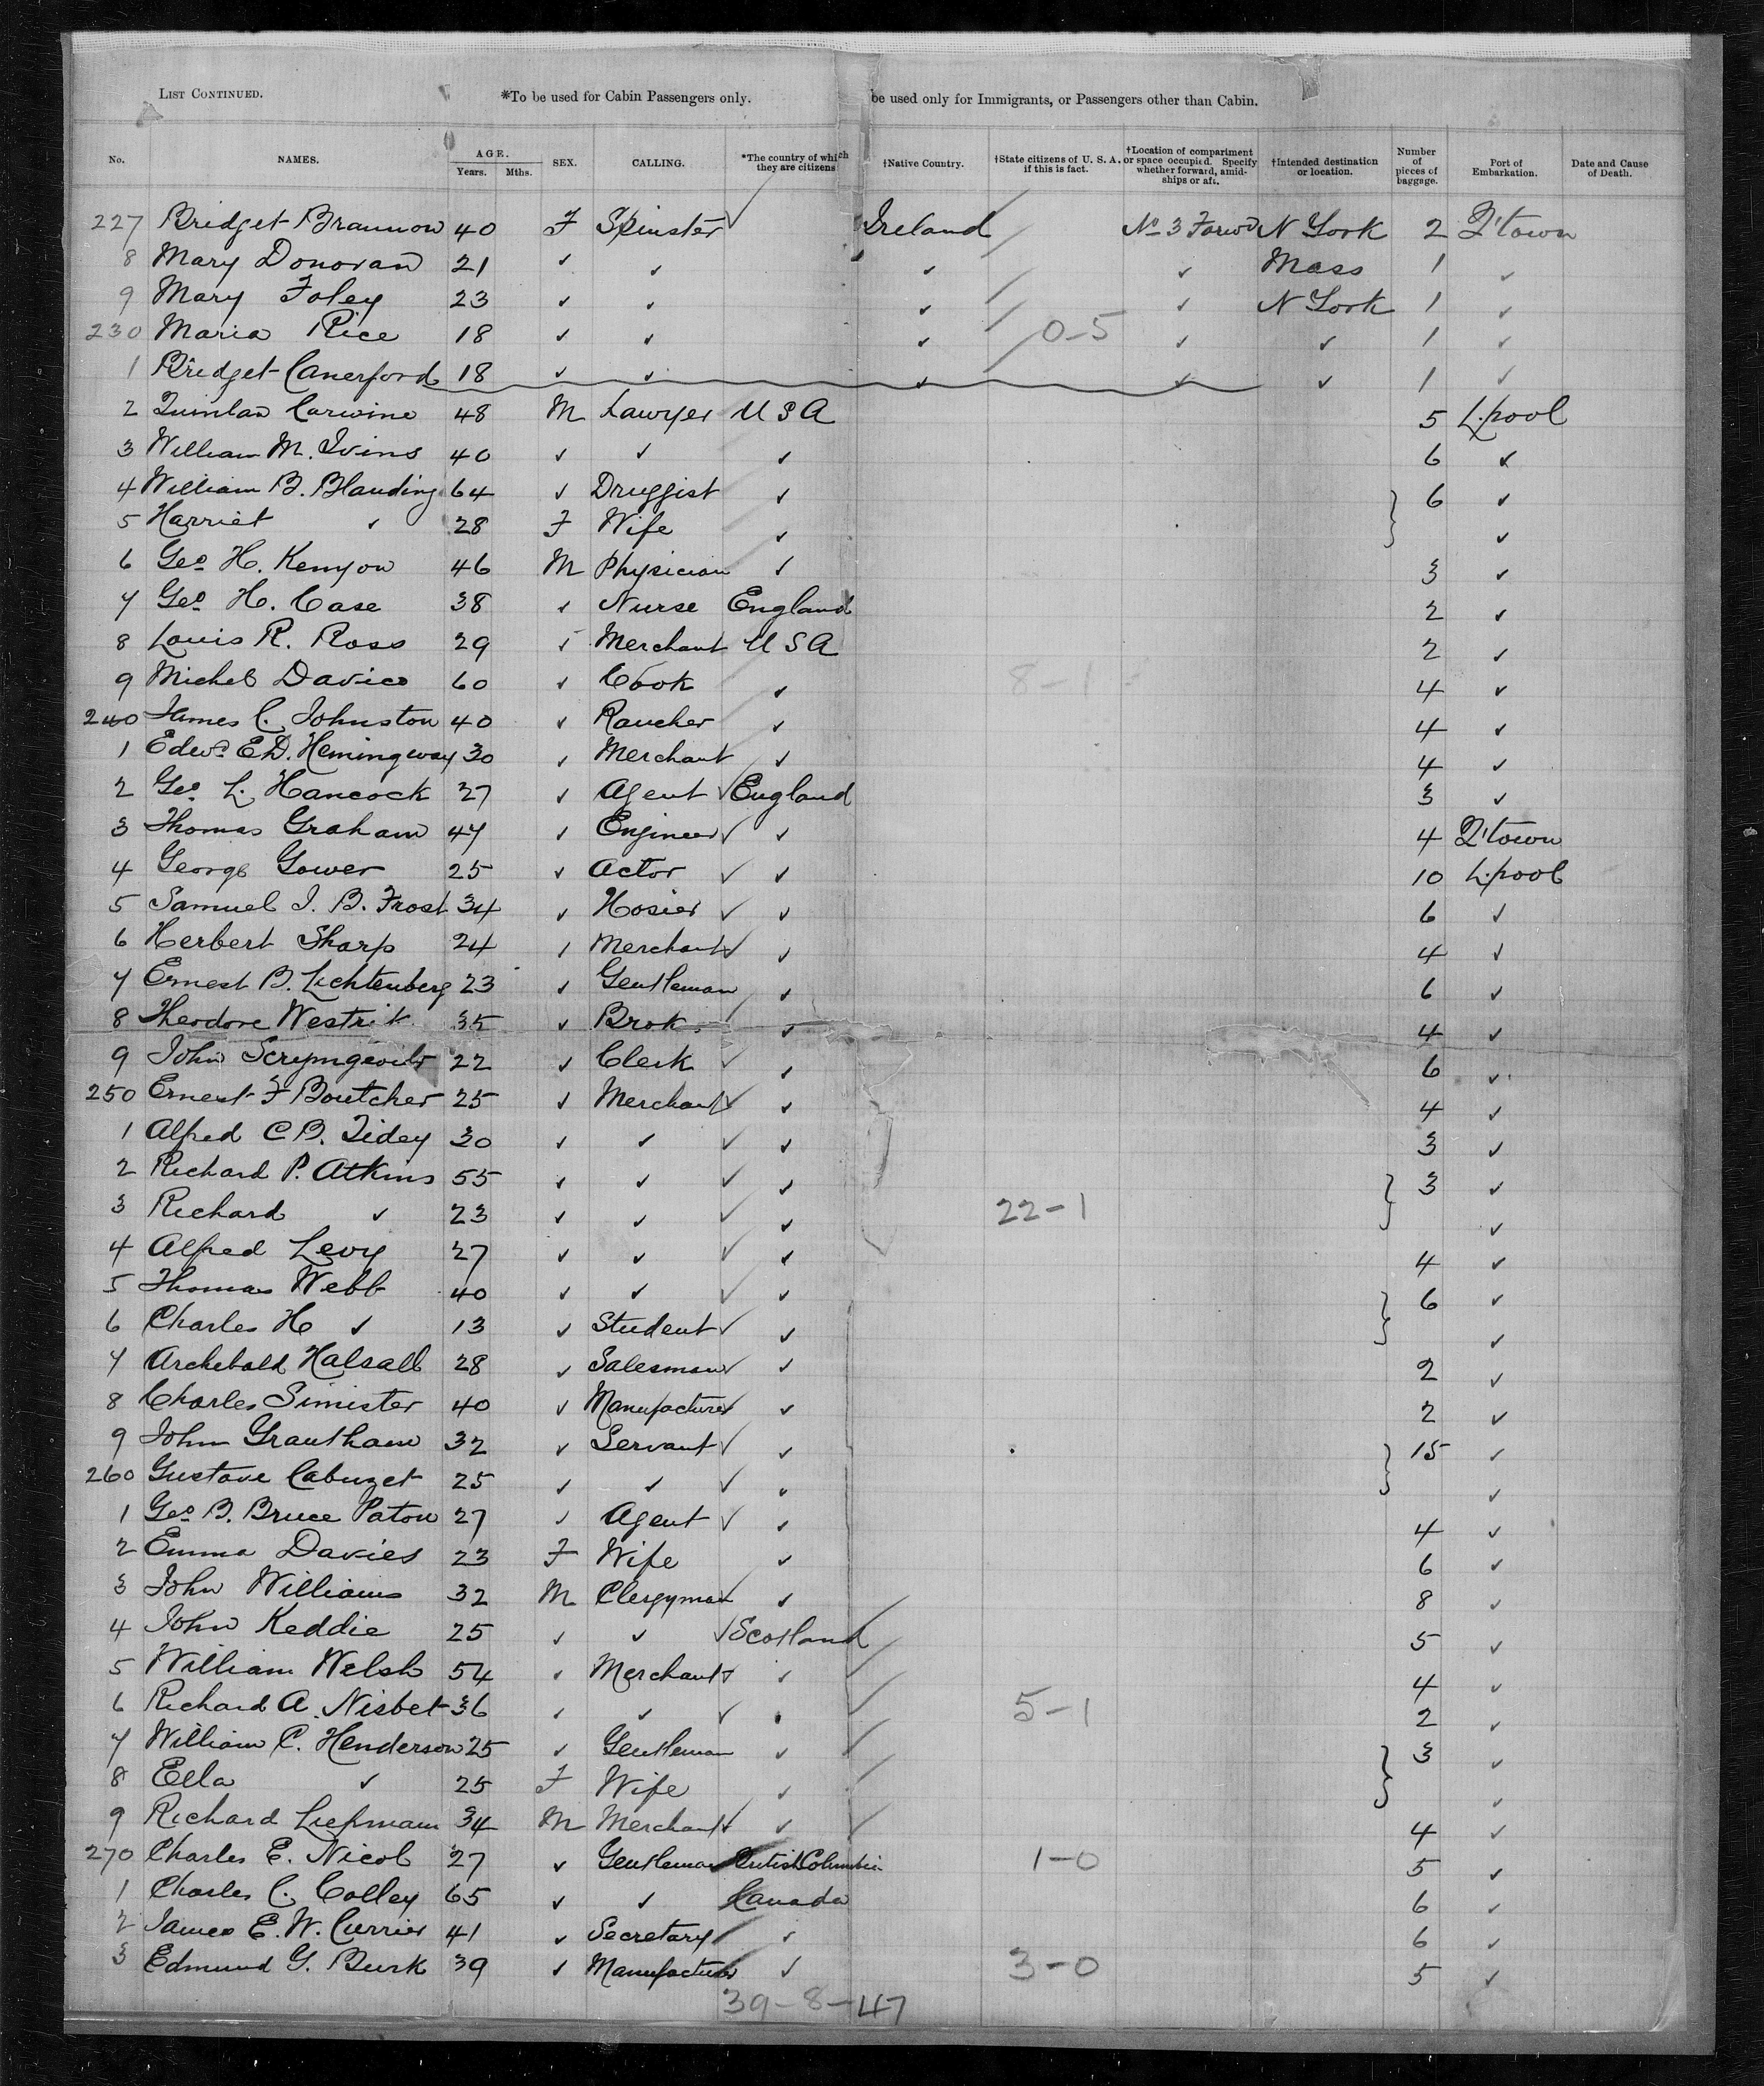 LIST CONTINUED. *To be used for Cabin Passengers only. be used only for Immigrants, or Passengers other than Cabin.
No. NAMES. AGE. Years. Mths. SEX. CALLING. *The country of which they are citizens †Native Country. †State citizens of U. S. A. if this is fact. †Location of compartment or space occupied. Specify whether forward, amidships or aft. †Intended destination or location. Number of pieces of baggage. Port of Embarkation. Date and Cause of Death.
227 Bridget Brannon 40 F Spinster Ireland No 3 Forwd N York 2 Q'town
8 Mary Donovan 21 ✓ ✓ ✓ ✓ Mass 1 ✓
9 Mary Foley 23 ✓ ✓ ✓ ✓ N York 1 ✓
230 Maria Rice 18 ✓ ✓ ✓ 0-5 ✓ ✓ 1 ✓
1 Bridget Canerford 18 ✓ ✓ ✓ ✓ ✓ 1 ✓
2 Quinlan Carwine 48 M Lawyer U S A 5 L.pool
3 William M. Ivins 40 ✓ ✓ ✓ 6 ✓
4 William B. Blanding 64 ✓ Druggist ✓ 6 ✓
5 Harriet ✓ 28 F Wife ✓ ✓
6 Geo H. Kenyon 46 M Physician ✓ 3 ✓
7 Geo H. Case 38 ✓ Nurse England 2 ✓
8 Louis R. Ross 29 ✓ Merchant U S A 2 ✓
9 Michel Davico 60 ✓ Cook ✓ 8-1 4 ✓
240 James C. Johnston 40 ✓ Rancher ✓ 4 ✓
1 Edwd E.D. Hemingway 30 ✓ Merchant ✓ 4 ✓
2 Geo L. Hancock 27 ✓ Agent ✓ England 3 ✓
3 Thomas Graham 47 ✓ Engineer ✓ ✓ 4 Q'town
4 George Gower 25 ✓ Actor ✓ ✓ 10 L.pool
5 Samuel I. B. Frost 34 ✓ Hosier ✓ ✓ 6 ✓
6 Herbert Sharp 24 ✓ Merchant ✓ ✓ 4 ✓
7 Ernest B. Lichtenberg 23 ✓ Gentleman ✓ 6 ✓
8 Theodore Westrik 35 ✓ Brok ✓ 4 ✓
9 John Scrymgeour 22 ✓ Clerk ✓ ✓ 6 ✓
250 Ernest F Boutcher 25 ✓ Merchant ✓ ✓ 4 ✓
1 Alfred C B. Tidey 30 ✓ ✓ ✓ ✓ 3 ✓
2 Richard P. Atkins 55 ✓ ✓ ✓ ✓ 3 ✓
3 Richard ✓ 23 ✓ ✓ ✓ ✓ 22-1 ✓
4 Alfred Levy 27 ✓ ✓ ✓ ✓ 4 ✓
5 Thomas Webb 40 ✓ ✓ ✓ ✓ 6 ✓
6 Charles H ✓ 13 ✓ Student ✓ ✓ ✓
7 Archibald Halsall 28 ✓ Salesman ✓ ✓ 2 ✓
8 Charles Simister 40 ✓ Manufacturer ✓ 2 ✓
9 John Grantham 32 ✓ Servant ✓ ✓ 15 ✓
260 Gustave Cabuzet 25 ✓ ✓ ✓ ✓ ✓
1 Geo B. Bruce Paton 27 ✓ Agent ✓ ✓ 4 ✓
2 Emma Davies 23 F Wife ✓ 6 ✓
3 John Williams 32 M Clergyman ✓ 8 ✓
4 John Keddie 25 ✓ ✓ ✓ Scotland 5 ✓
5 William Welsh 54 ✓ Merchant ✓ ✓ 4 ✓
6 Richard A. Nisbet 36 ✓ ✓ ✓ ✓ 5-1 2 ✓
7 William C. Henderson 25 ✓ Gentleman ✓ 3 ✓
8 Ella ✓ 25 F Wife ✓ ✓
9 Richard Liepmann 34 M Merchant ✓ ✓ 4 ✓
270 Charles E. Nicol 27 ✓ Gentleman British Columbia 1-0 5 ✓
1 Charles C. Colley 65 ✓ ✓ Canada 6 ✓
2 James E. W. Currier 41 ✓ Secretary ✓ 6 ✓
3 Edmund G. Burk 39 ✓ Manufacturer ✓ 3-0 5 ✓
39-8-47